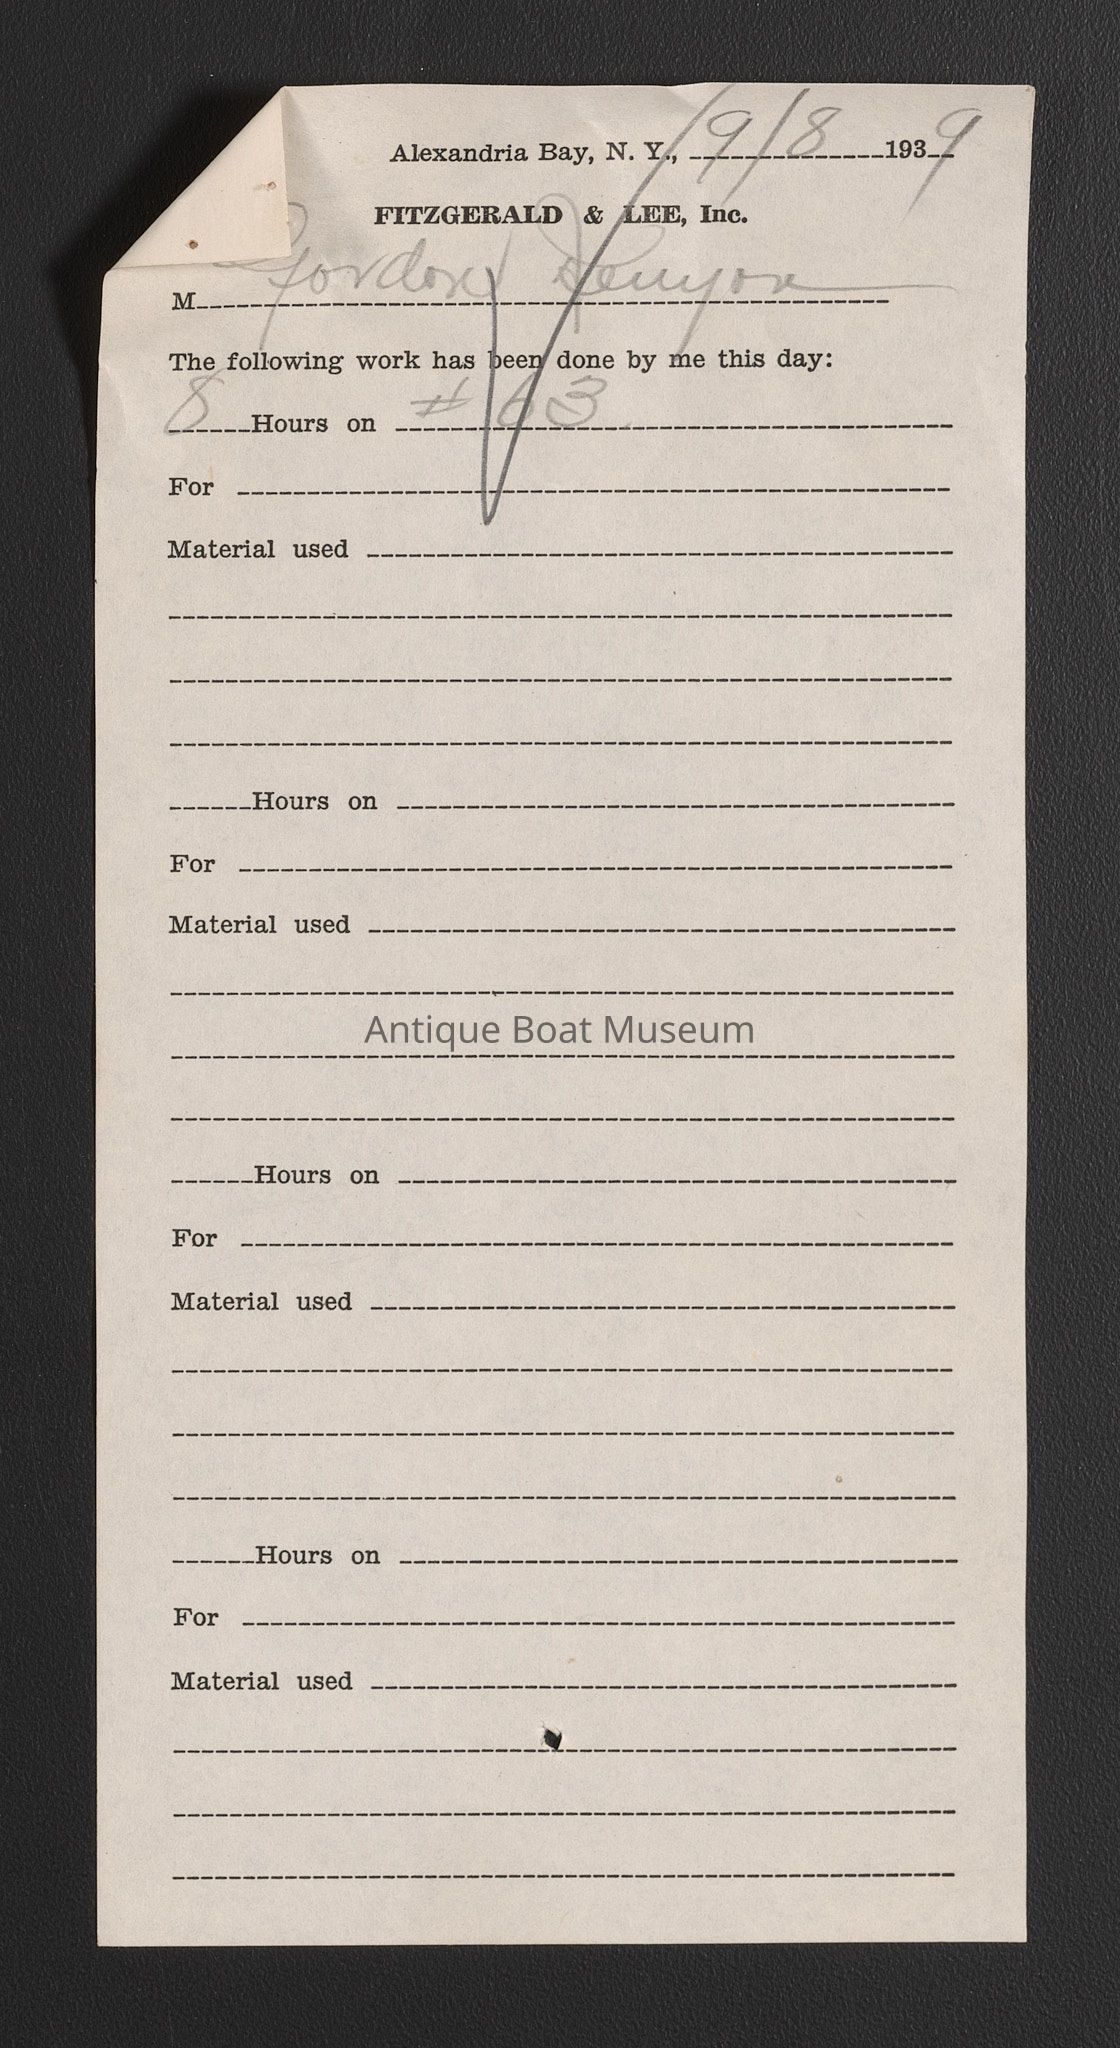 Alexandria Bay, N. Y., 9/8 1939
FITZGERALD & LEE, Inc.
M Gordon Kenyon
The following work has been done by me this day:
8 Hours on # 63
For
Material used
Hours on
For
Material used
Antique Boat Museum
Hours on
For
Material used
Hours on
For
Material used